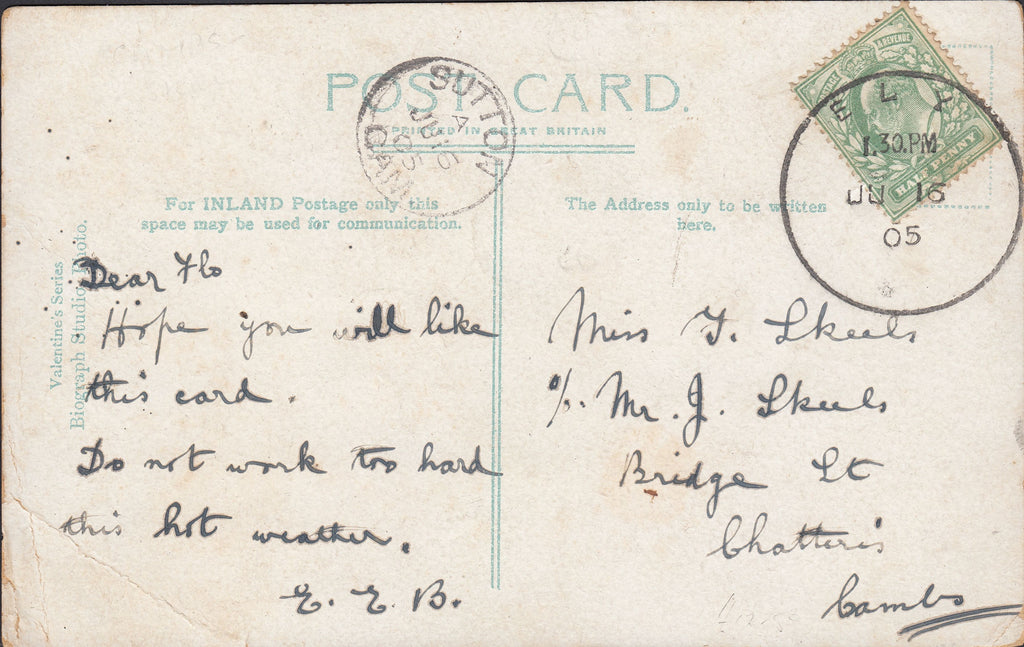 POST CARD.
PRINTED IN GREAT BRITAIN
SUTTON
A
JU 16
05
CAM
REVENUE
HALF PENNY
ELY
1.30.PM
JU 16
05
For INLAND Postage only this
space may be used for communication.
The Address only to be written
here.
Valentine's Series
Biograph Studio, Photo.
Dear Flo
Hope you will like
this card.
Do not work too hard
this hot weather.
E. E. B.
Miss F. Skeels
c/o. Mr. J. Skeels
Bridge St
Chatteris
Cambs